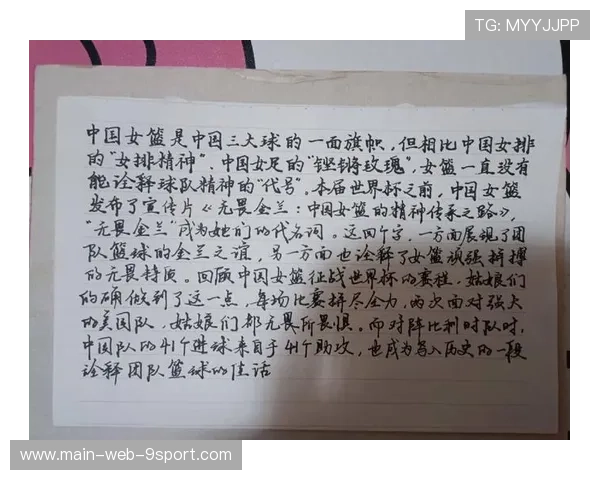 TG: MYYJJPP
中国女篮是中国三大球的一面旗帜，但相比中国女排
的“女排精神”、中国女足的“铿锵玫瑰”，女篮一直没有
能诠释球队精神的“代号”。本届世界杯之前，中国女篮
发布了宣传片《无畏金兰：中国女篮的精神传承之路》，
“无畏金兰”成为她们的代名词。这四个字，一方面展现了团
队篮球的金兰之谊，另一方面也诠释了女篮顽强拼搏
的无畏特质。回顾中国女篮征战世界杯的赛程，姑娘们
的确做到了这一点，每场比赛拼尽全力，两次面对强大
的美国队，姑娘们都无畏所畏惧。而对阵比利时队时，
中国队的41个进球来自于41个助攻，也成为写入历史的一段
诠释团队篮球的佳话
www-main-web-9sport.com/